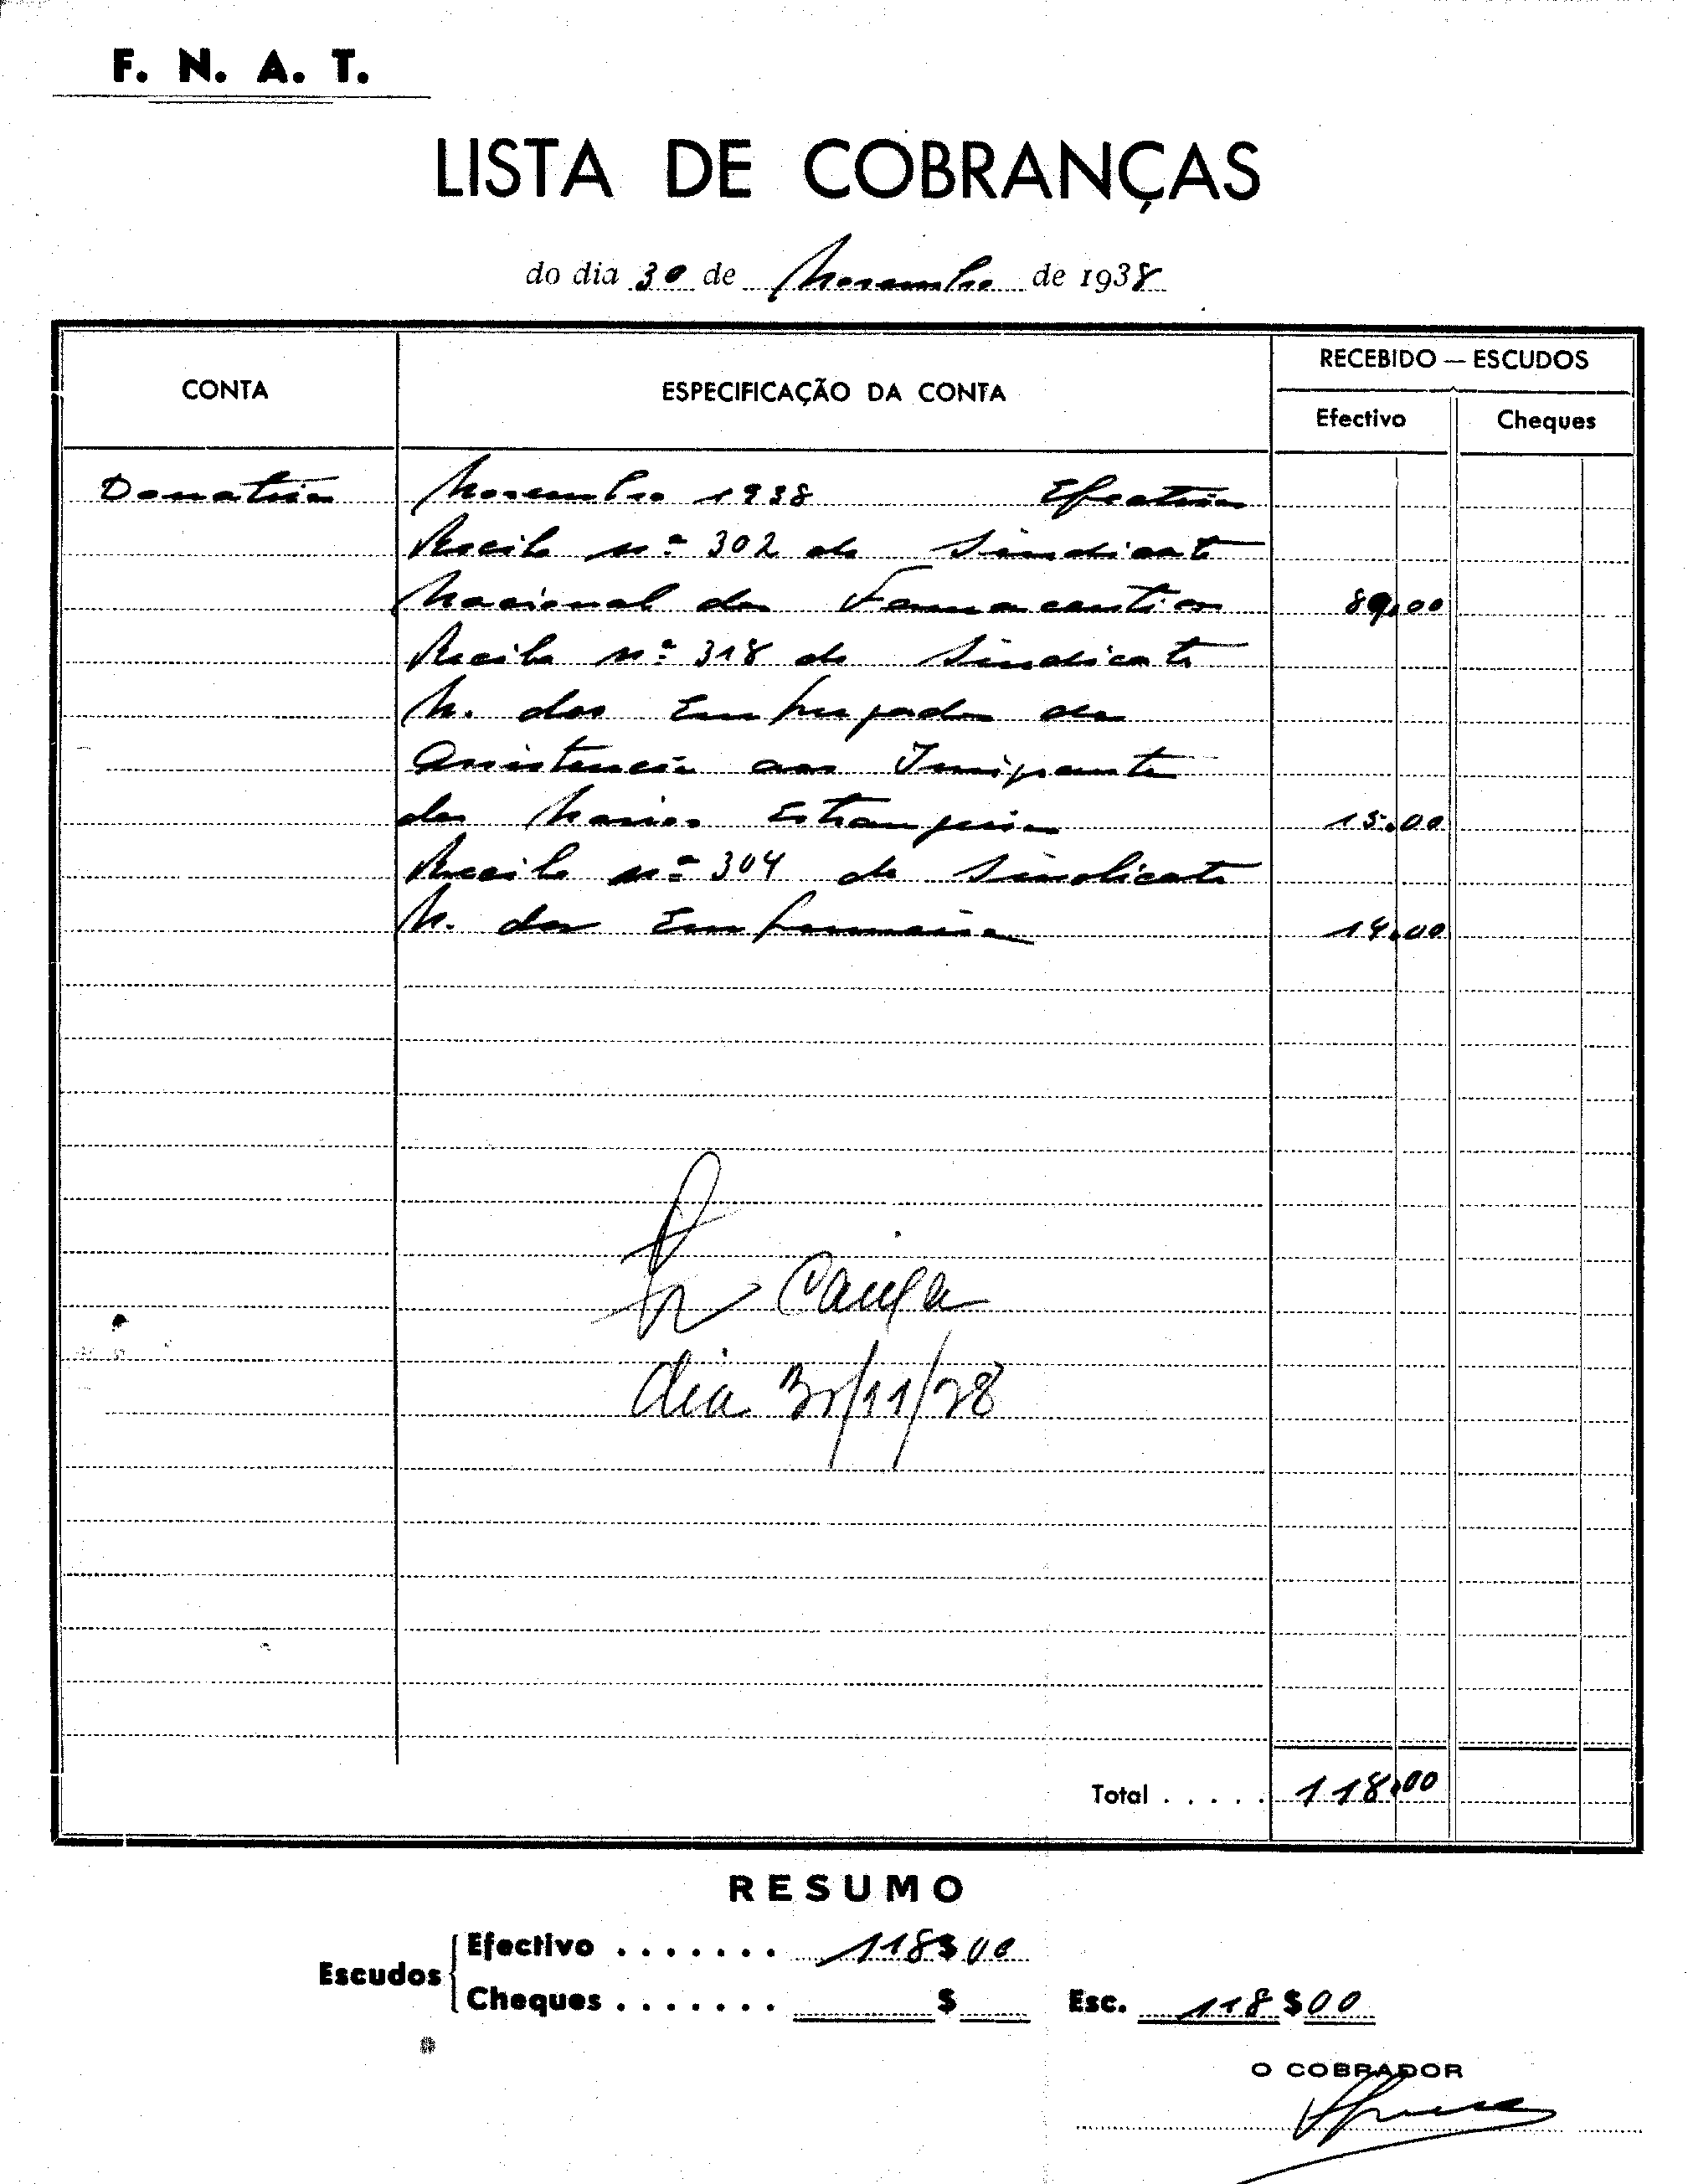 F. N. A. T.
LISTA DE COBRANÇAS
do dia 30 de Novembro de 1938
CONTA
ESPECIFICAÇÃO DA CONTA
RECEBIDO — ESCUDOS
Efectivo
Cheques
Donativos Novembro 1938 Efectivos
Recibo nº 302 do Sindicato
Nacional dos Farmaceuticos 89,00
Recibo nº 318 do Sindicato
N. dos Empregados da
Assistencia aos Imigrantes
dos Navios Estrangeiros 15.00
Recibo nº 304 do Sindicato
N. dos Enfermeiros 14.00
Caixa
dia
Total . . . . . 118.00
RESUMO
Escudos
Efectivo . . . . . . . 118$00
Cheques . . . . . . . $
Esc. 118$00
O COBRADOR